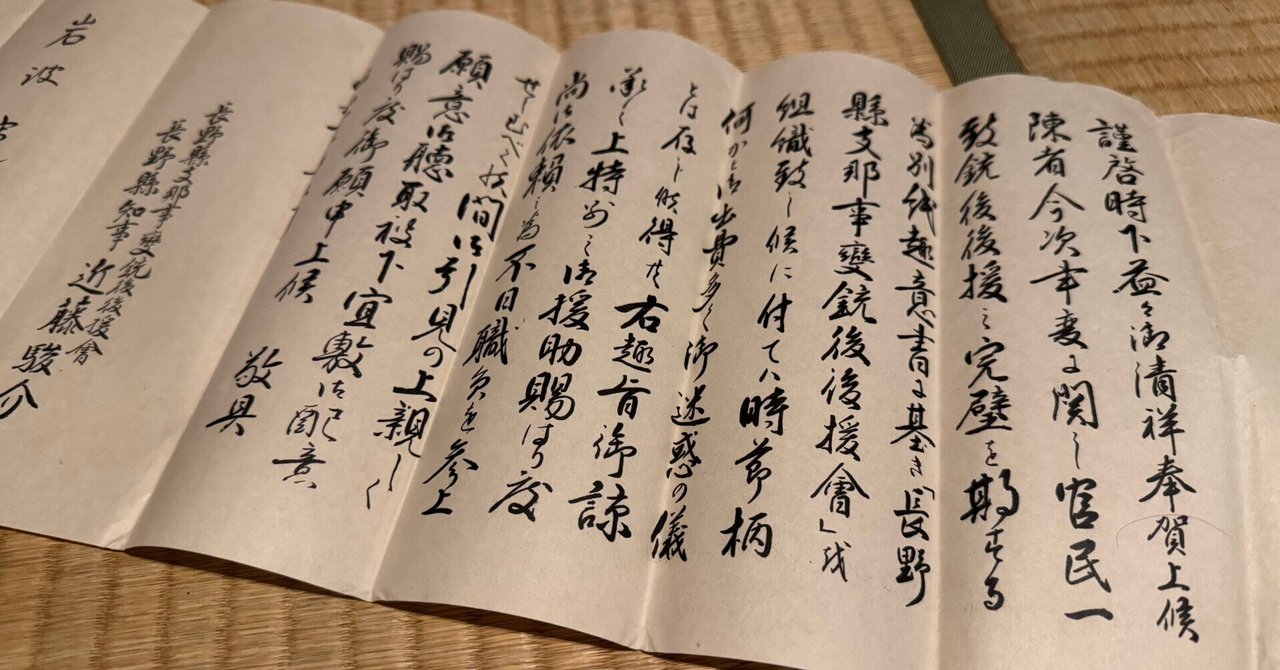 謹啓時下益々御清祥奉賀上候
陳者今次事変に関し官民一
致銃後後援之完璧を期する
為別紙趣意書に基き「長野
縣支那事變銃後後援會」を
組織致し候に付ては時節柄
何かと御出費多く御迷惑の儀
とは存じ候得共右趣旨御諒
承之上特別之御援助賜はり度
尚御依頼之為不日職員を参上
せしむべく候間御引見の上親しく
願意御聴取被下宜敷御配意
賜はり度御願申上候
敬具
長野縣支那事變銃後後援會
長野縣知事 近藤駿介
岩波